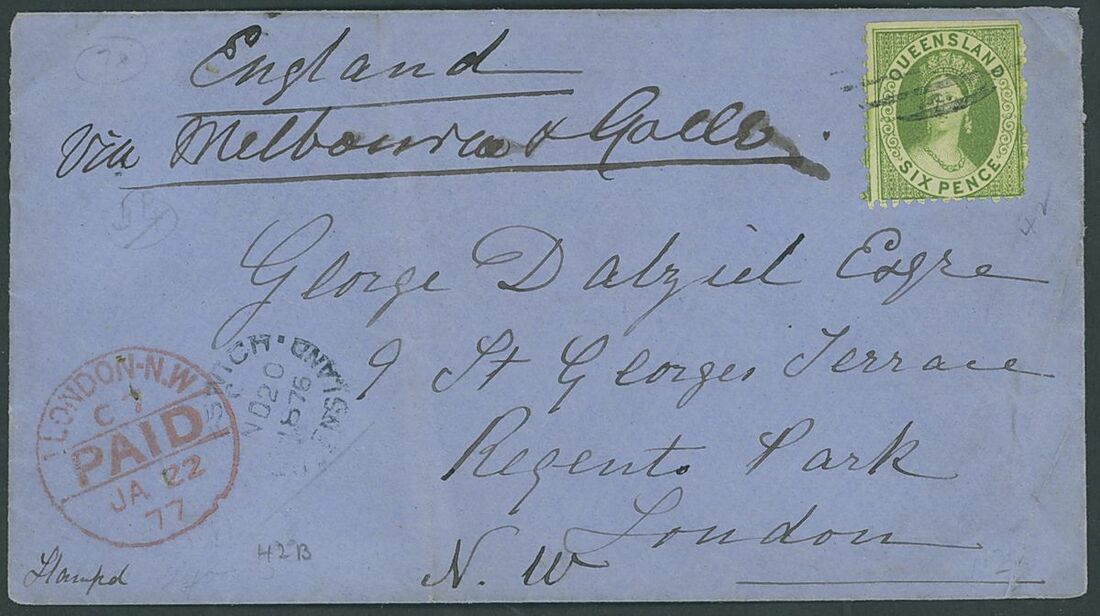 England
via Melbourne & Galle
QUEENSLAND
SIX PENCE
George Dalziel Esqre
9 St Georges Terrace
Regents Park
London
N. W
LONDON-N.W
C 7
PAID
JA 22
77
SWICH. QUEENSLAND
NO 20
1876
42B
42
Stampd